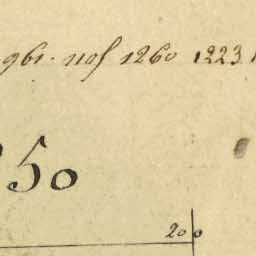 961. 1105 1260 1223
50
200